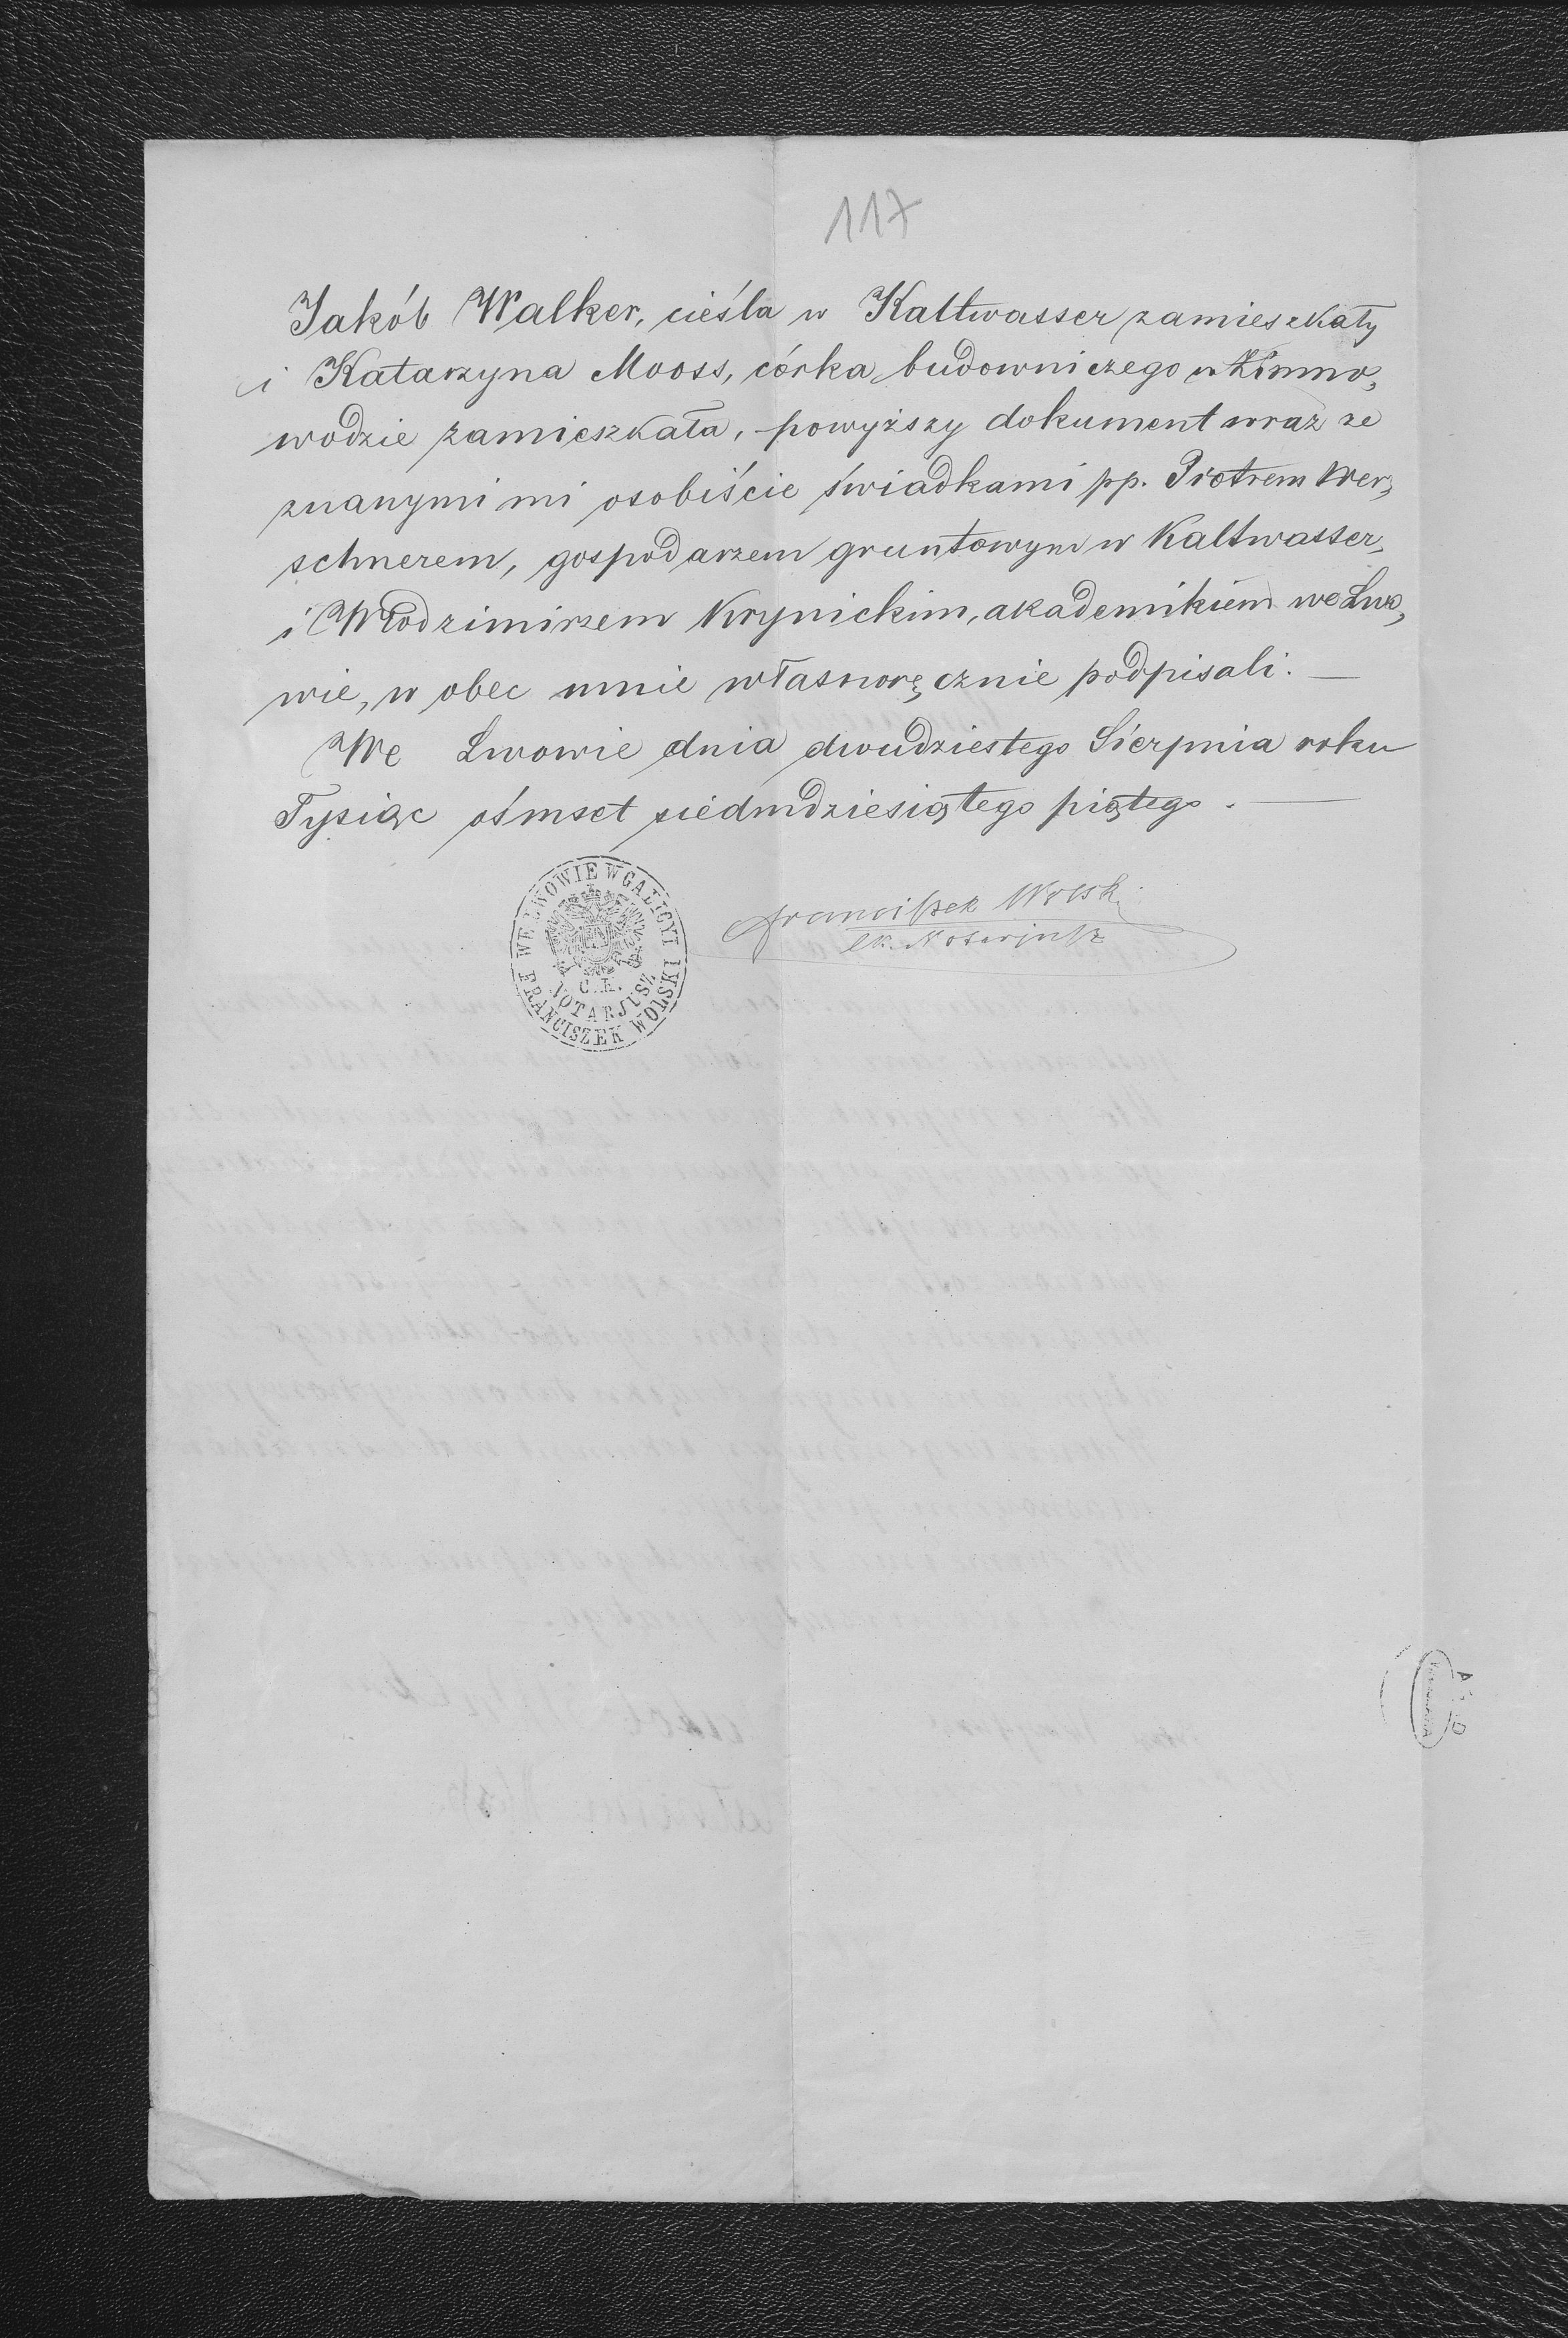 117
Jakób Walker, cieśla w Kaltwasser zamieszkały
i Katarzyna Mooss, córka budowniczego w Zimno„
wodzie zamieszkała, powyższy dokument wraz ze
znanymi mi osobiście świadkami pp. Piotrem Wer„
schnerem, gospodarzem gruntowym w Kaltwasser,
i Włodzimirzem Krynickim, akademikiem we Lwo„
wie, w obec mnie własnoręcznie podpisali. —
We Lwowie dnia dwudziestego Sierpnia roku
Tysiąc ośmset siedmdziesiątego piątego. —
Franciszek Wolski
ck. Notarjusz
WE LWOWIE W GALICYI
C.K.
NOTARJUSZ
FRANCISZEK WOLSKI